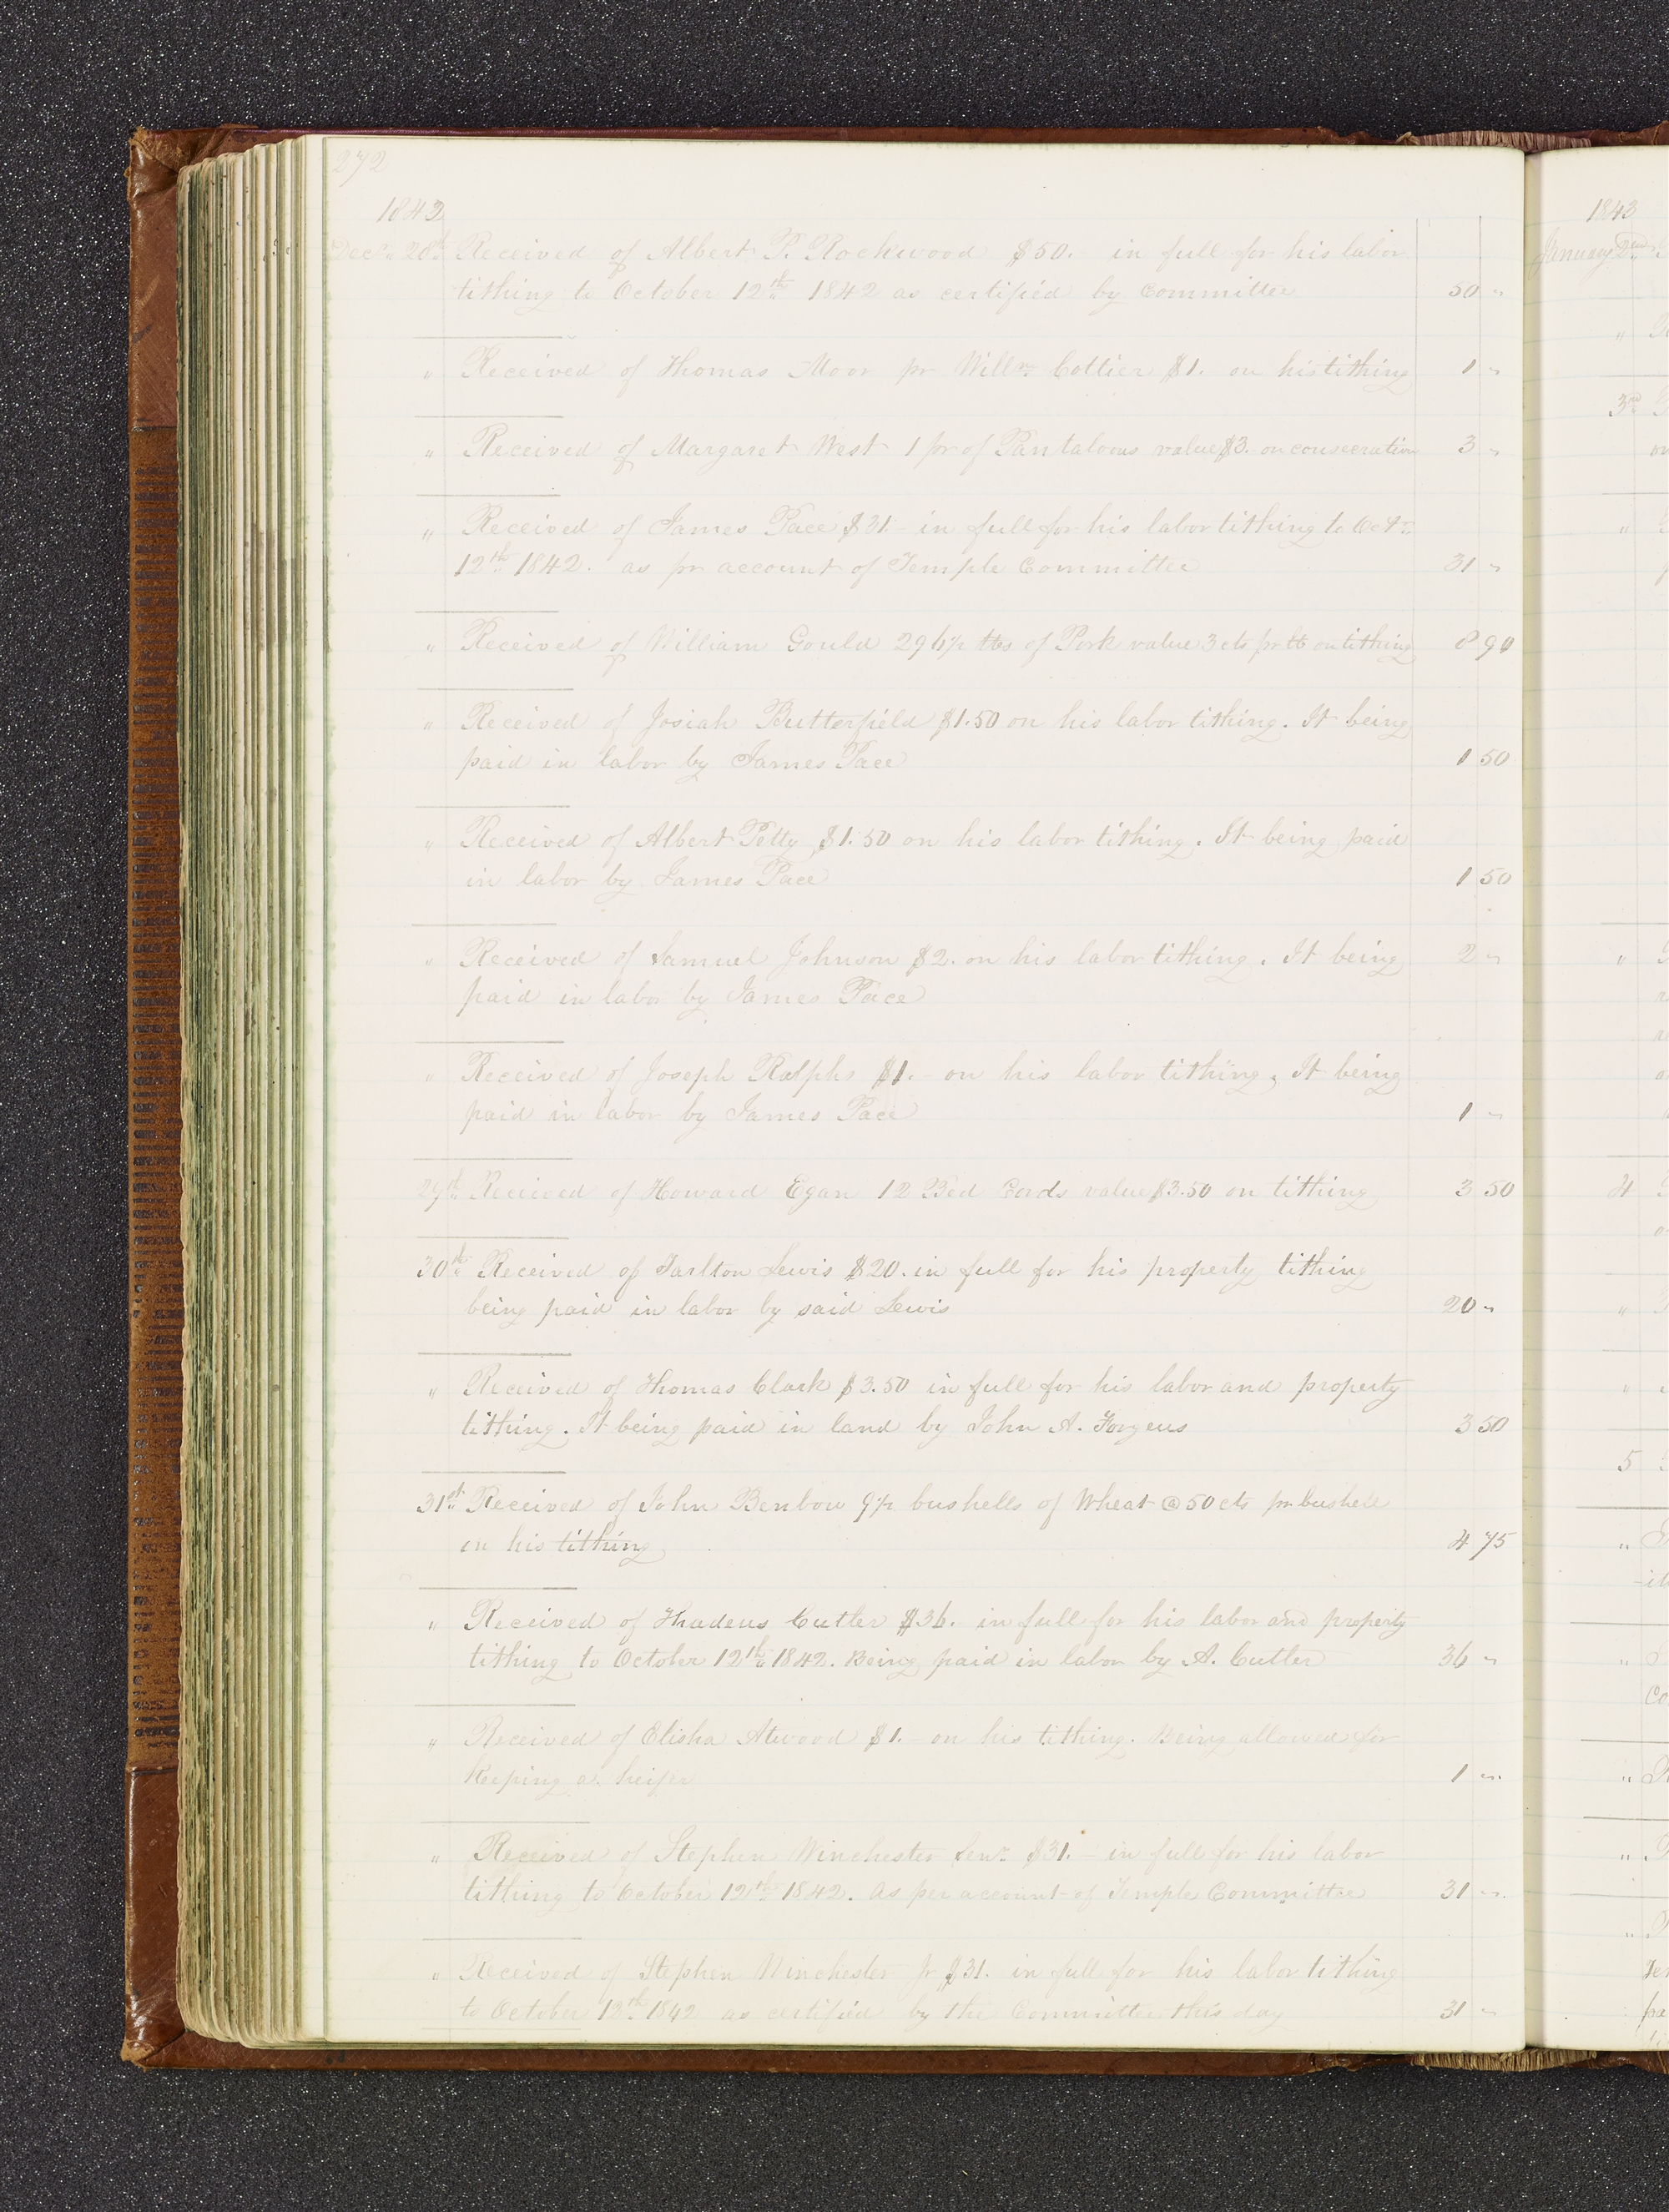 272
1842
Decr. 28th Received of Albert P. Rockwood $50. in full for his labor
tithing to October 12th 1842 as certified by Committee 50 "
" Received of Thomas Moor pr Willm Cottier $1. on his tithing 1 "
" Received of Margaret West 1 pr of Pantaloons value $3. on consecration 3 "
" Received of James Pace $31.- in full for his labor tithing to Octr.
12th 1842. as pr account of Temple Committee 31 "
" Received of William Gould 296½ lbs of Pork value 3 cts pr lb on tithing 8 90
" Received of Josiah Butterfield $1.50 on his labor tithing. It being
paid in labor by James Pace 1 50
" Received of Albert Petty $1.50 on his labor tithing. It being paid
in labor by James Pace 1 50
" Received of Samuel Johnson $2. on his labor tithing. It being 2 "
paid in labor by James Pace
" Received of Joseph Ralph $1.- on his labor tithing. It being
paid in labor by James Pace 1 "
29th Received of Howard Egan 12 Bed Cords value $3.50 on tithing 3 50
30th Received of Tarlton Lewis $20. in full for his property tithing
being paid in labor by said Lewis 20 "
" Received of Thomas Clark $3.50 in full for his labor and property
tithing. It being paid in land by John A. Forgeus 3 50
31st Received of John Benbow 9½ bushells of Wheat @ 50 cts pr bushell
on his tithing 4 75
" Received of Thadeus Cutler $36. in full for his labor and property
tithing to October 12th 1842. Being paid in labor by A. Cutler 36 "
" Received of Elisha Atwood $1.- on his tithing. Being allowed for
keeping a heifer 1 "
" Received of Stephen Winchester Senr. $31.- in full for his labor
tithing to October 12th 1842. As per account of Temple Committee 31 "
" Received of Stephen Winchester Jr $31. in full for his labor tithing
to October 12th 1842 as certified by the Committee this day 31 "
1843
January 2nd
"
3rd
"
"
4
"
"
5
"
"
"
"
"